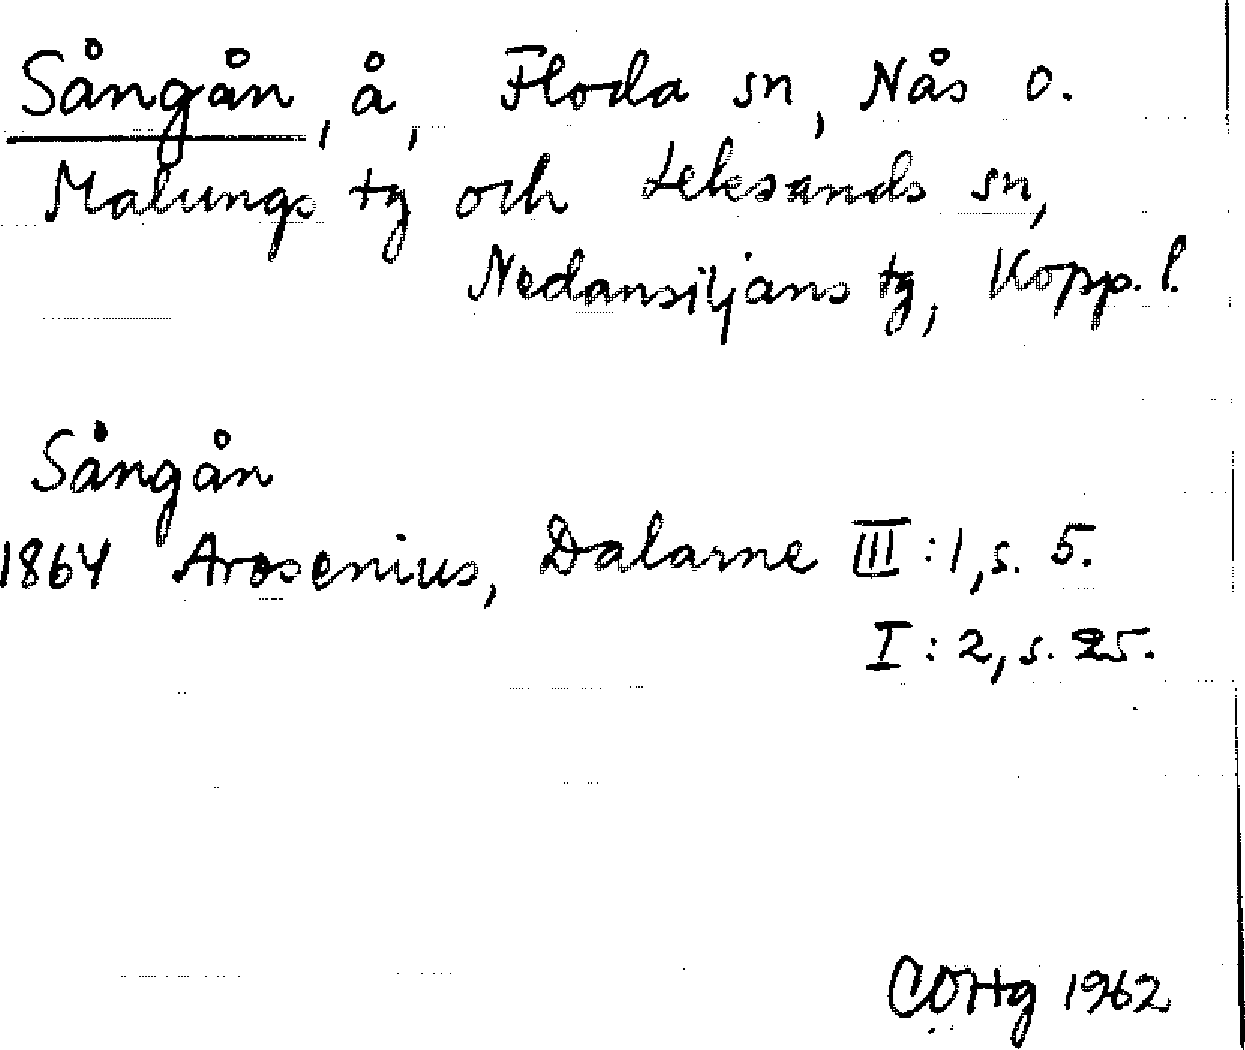 Sångån, å, Floda sn, Nås o.
Malungs tg och Leksands sn,
Nedansiljans tg, Kopp. l.
Sångån
1864 Arosenius, Dalarne III:1, s. 5.
I:2, s. 25.
1962